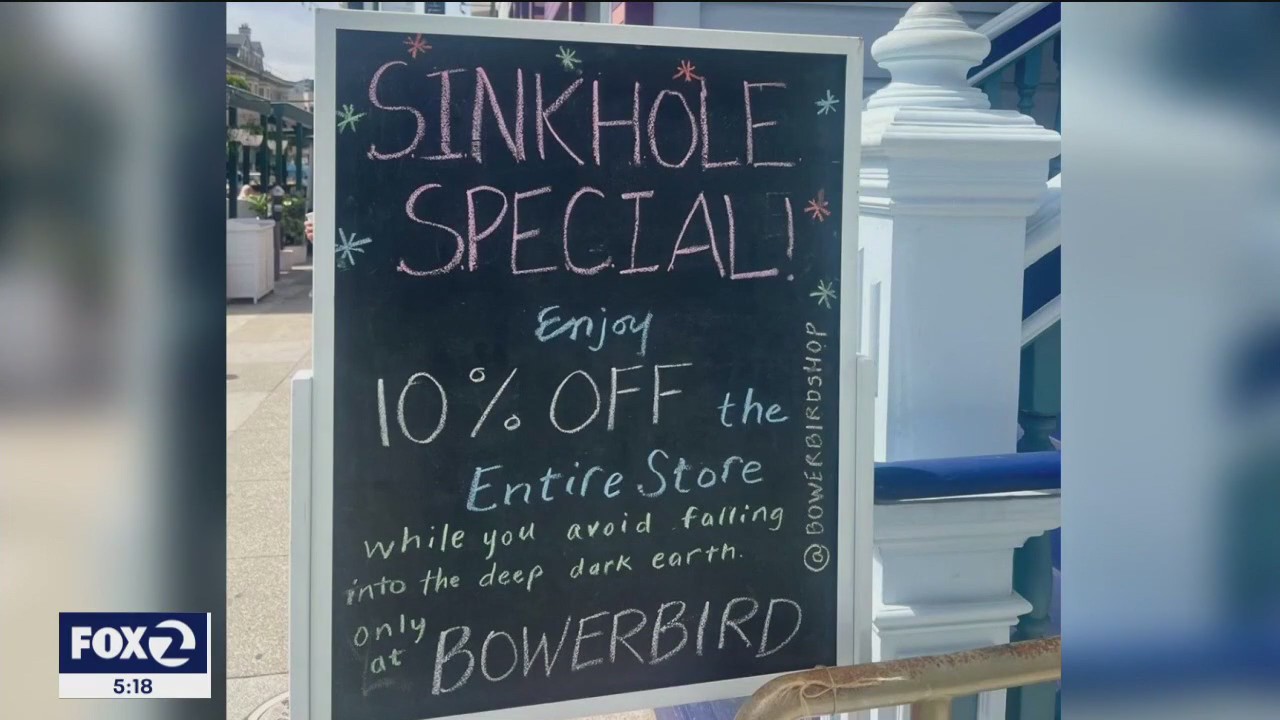 SINKHOLE
SPECIAL!
Enjoy
10% OFF the
Entire Store
while you avoid falling
into the deep dark earth.
only
at BOWERBIRD
@BOWERBIRDSHOP
FOX 2
5:18